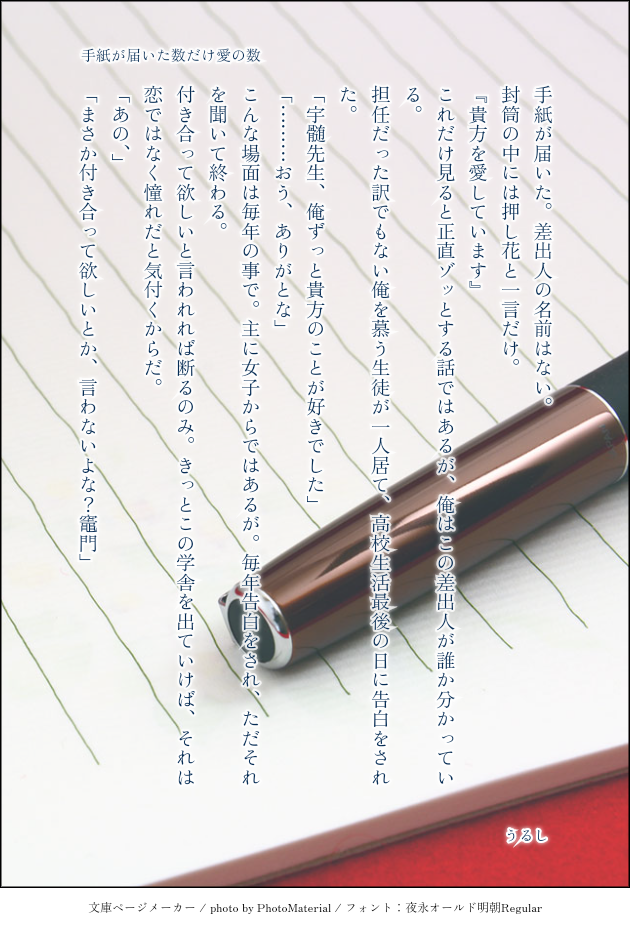 手紙が届いた数だけ愛の数
手紙が届いた。差出人の名前はない。
封筒の中には押し花と一言だけ。
『貴方を愛しています』
これだけ見ると正直ゾッとする話ではあるが、俺はこの差出人が誰か分かってい
る。
担任だった訳でもない俺を慕う生徒が一人居て、高校生活最後の日に告白をされ
た。
「宇髄先生、俺ずっと貴方のことが好きでした」
「………おう、ありがとな」
こんな場面は毎年の事で。主に女子からではあるが。毎年告白をされ、ただそれ
を聞いて終わる。
付き合って欲しいと言われれば断るのみ。きっとこの学舎を出ていけば、それは
恋ではなく憧れだと気付くからだ。
「あの、」
「まさか付き合って欲しいとか、言わないよな？竈門」
うるし
文庫ページメーカー / photo by PhotoMaterial / フォント：夜永オールド明朝Regular